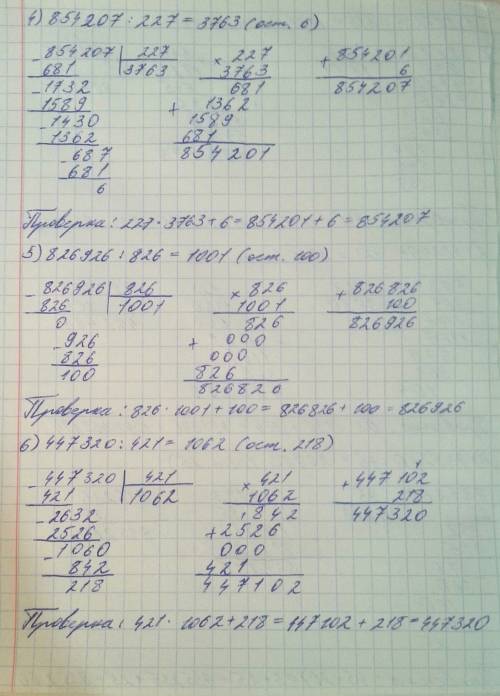 4) 854207 : 227 = 3763 (ост. 6)
- 854207 | 227 × 227 + 854201
681 3763 3763 6
- 1732 681 854207
1589 + 1362
- 1430 1589
1362 681
- 687 854201
681
6
Проверка: 227 · 3763 + 6 = 854201 + 6 = 854207
5) 826926 : 826 = 1001 (ост. 100)
- 826926 | 826 × 826 + 826826
826 1001 1001 100
0 826 826926
- 926 + 000
826 000
100 826
826826
Проверка: 826 · 1001 + 100 = 826826 + 100 = 826926
6) 447320 : 421 = 1062 (ост. 218)
- 447320 | 421 × 421 + 447102
421 1062 1062 218
- 2632 842 447320
2526 + 2526
- 1060 000
842 421
218 447102
Проверка: 421 · 1062 + 218 = 447102 + 218 = 447320